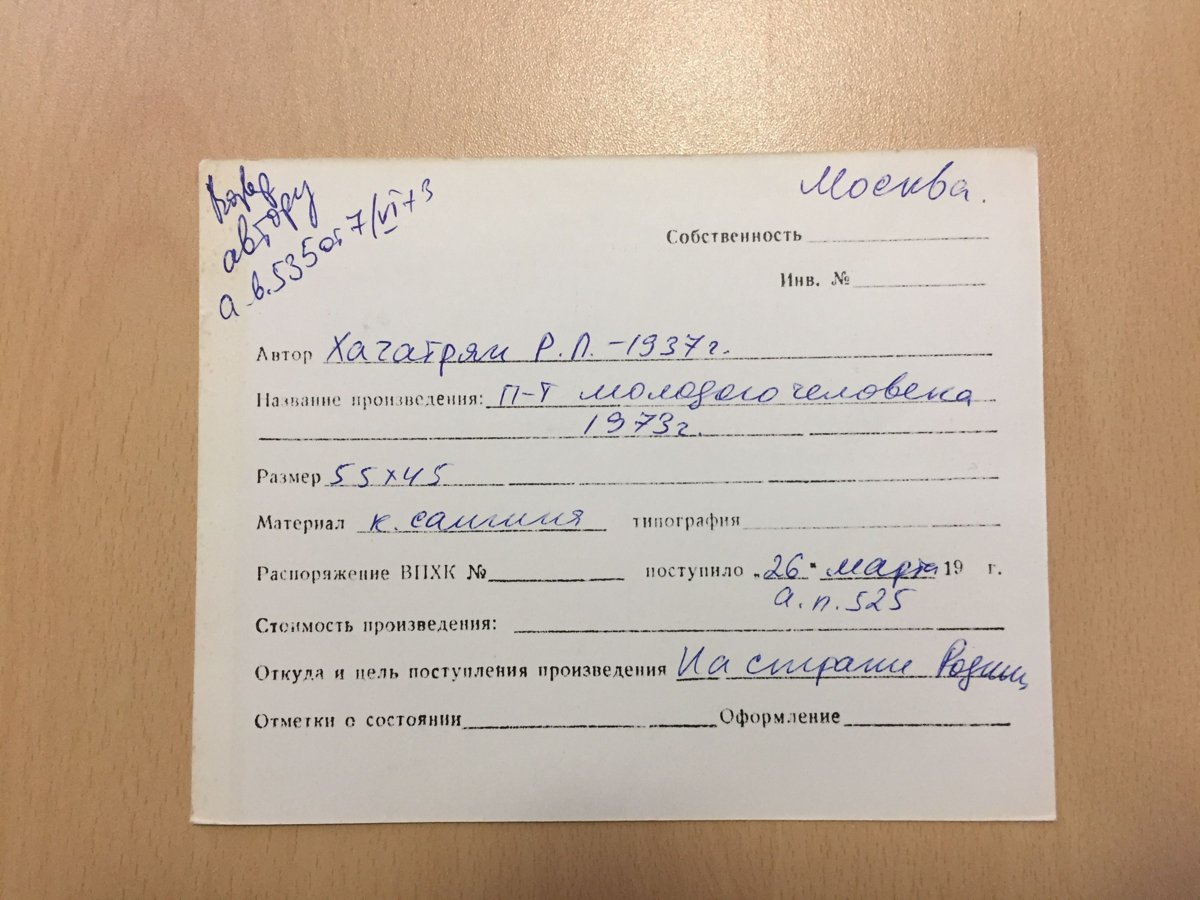 Возвр
автору
а.в.535 от 7/VI 73
Москва.
Собственность
Инв. №
Автор Хачатрян Р.Л. - 1937г.
Название произведения: п-т молодого человека
1973г.
Размер 55х45
Материал к. сангиня типография
Распоряжение ВПХК № поступило „26" марта 19 г.
а.п.525
Стоимость произведения:
Откуда и цель поступления произведения На страже Родины
Отметки о состоянии Оформление